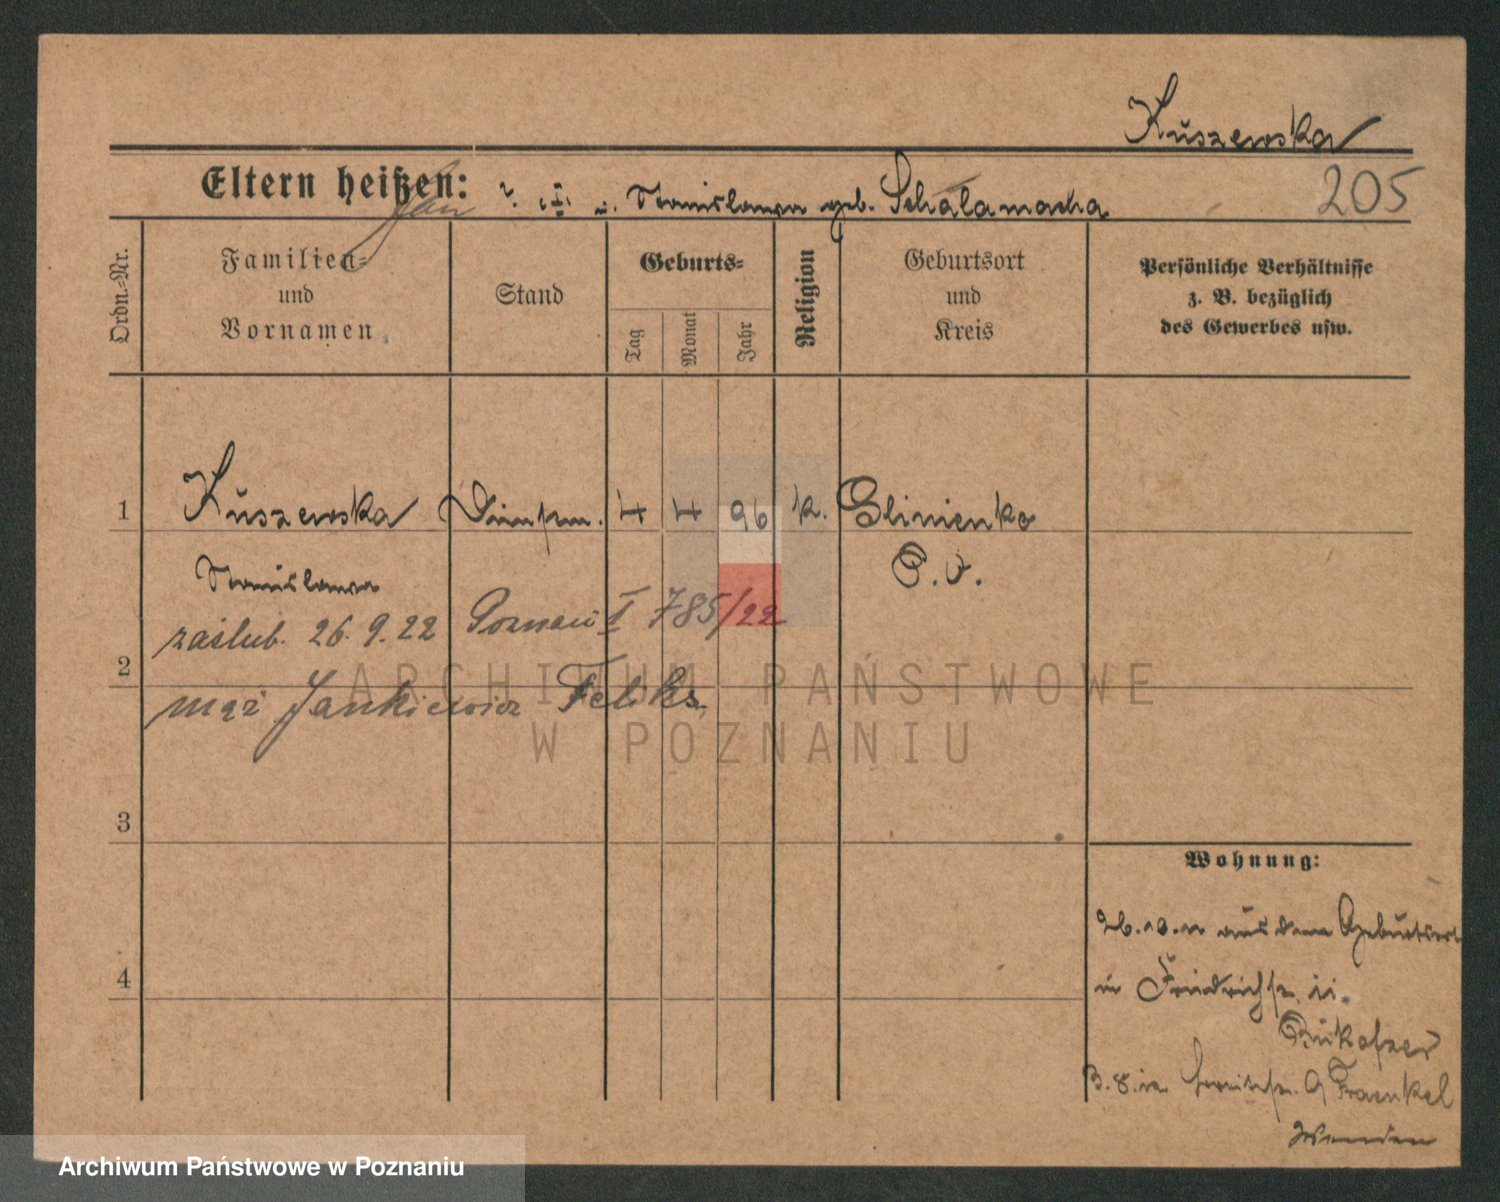 Kuszewska
Eltern heißen: Jan u. Stanislawa geb. Schalamacha
205
Ordn.-Nr.
Familien-
und
Vornamen
Stand
Geburts-
Tag
Monat
Jahr
Religion
Geburtsort
und
Kreis
Persönliche Verhältnisse
z. B. bezüglich
des Gewerbes usw.
1 Kuszewska 4 4 96 k. Glinienko
Stanislawa P. O.
zaślub. 26. 9. 22 Poznań I 785/22
2
mąż Jankiewicz Feliks
ARCHIWUM PAŃSTWOWE
W POZNANIU
3
Wohnung:
aus dem Geburtsort
4
in Friedrichstr. 11.
Fraenkel
Archiwum Państwowe w Poznaniu